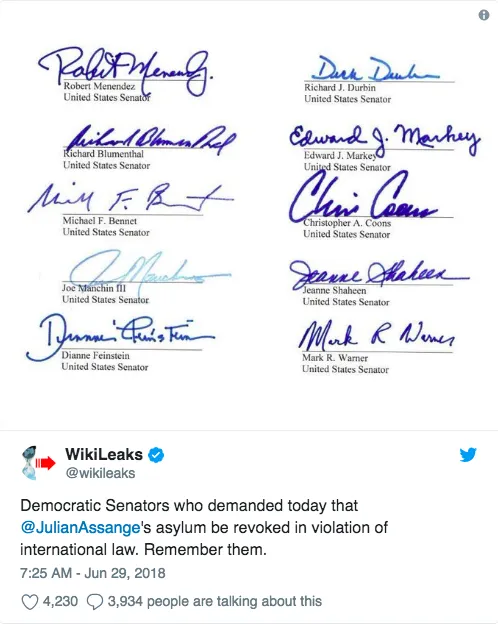 Robert Menendez
Robert Menendez
United States Senator
Dick Durbin
Richard J. Durbin
United States Senator
Richard Blumenthal
Richard Blumenthal
United States Senator
Edward J. Markey
Edward J. Markey
United States Senator
Michael F. Bennet
United States Senator
Chris Coons
Christopher A. Coons
United States Senator
Joe Manchin III
United States Senator
Jeanne Shaheen
Jeanne Shaheen
United States Senator
Dianne Feinstein
Dianne Feinstein
United States Senator
Mark R Warner
Mark R. Warner
United States Senator
WikiLeaks
@wikileaks
Democratic Senators who demanded today that
@JulianAssange's asylum be revoked in violation of
international law. Remember them.
7:25 AM - Jun 29, 2018
4,230 3,934 people are talking about this